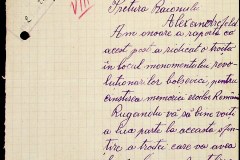 VIII
Pretura Raionului
Alexandrfeld
Am onoare a raporta că
acest post a ridicat o troiță
în locul monumentului revo-
luționarilor bolșevici, pentru
cinstirea memoriei eroilor Români
Rugându vă să bine voiți
a lua parte la această sfin-
țire a troitei care va avea